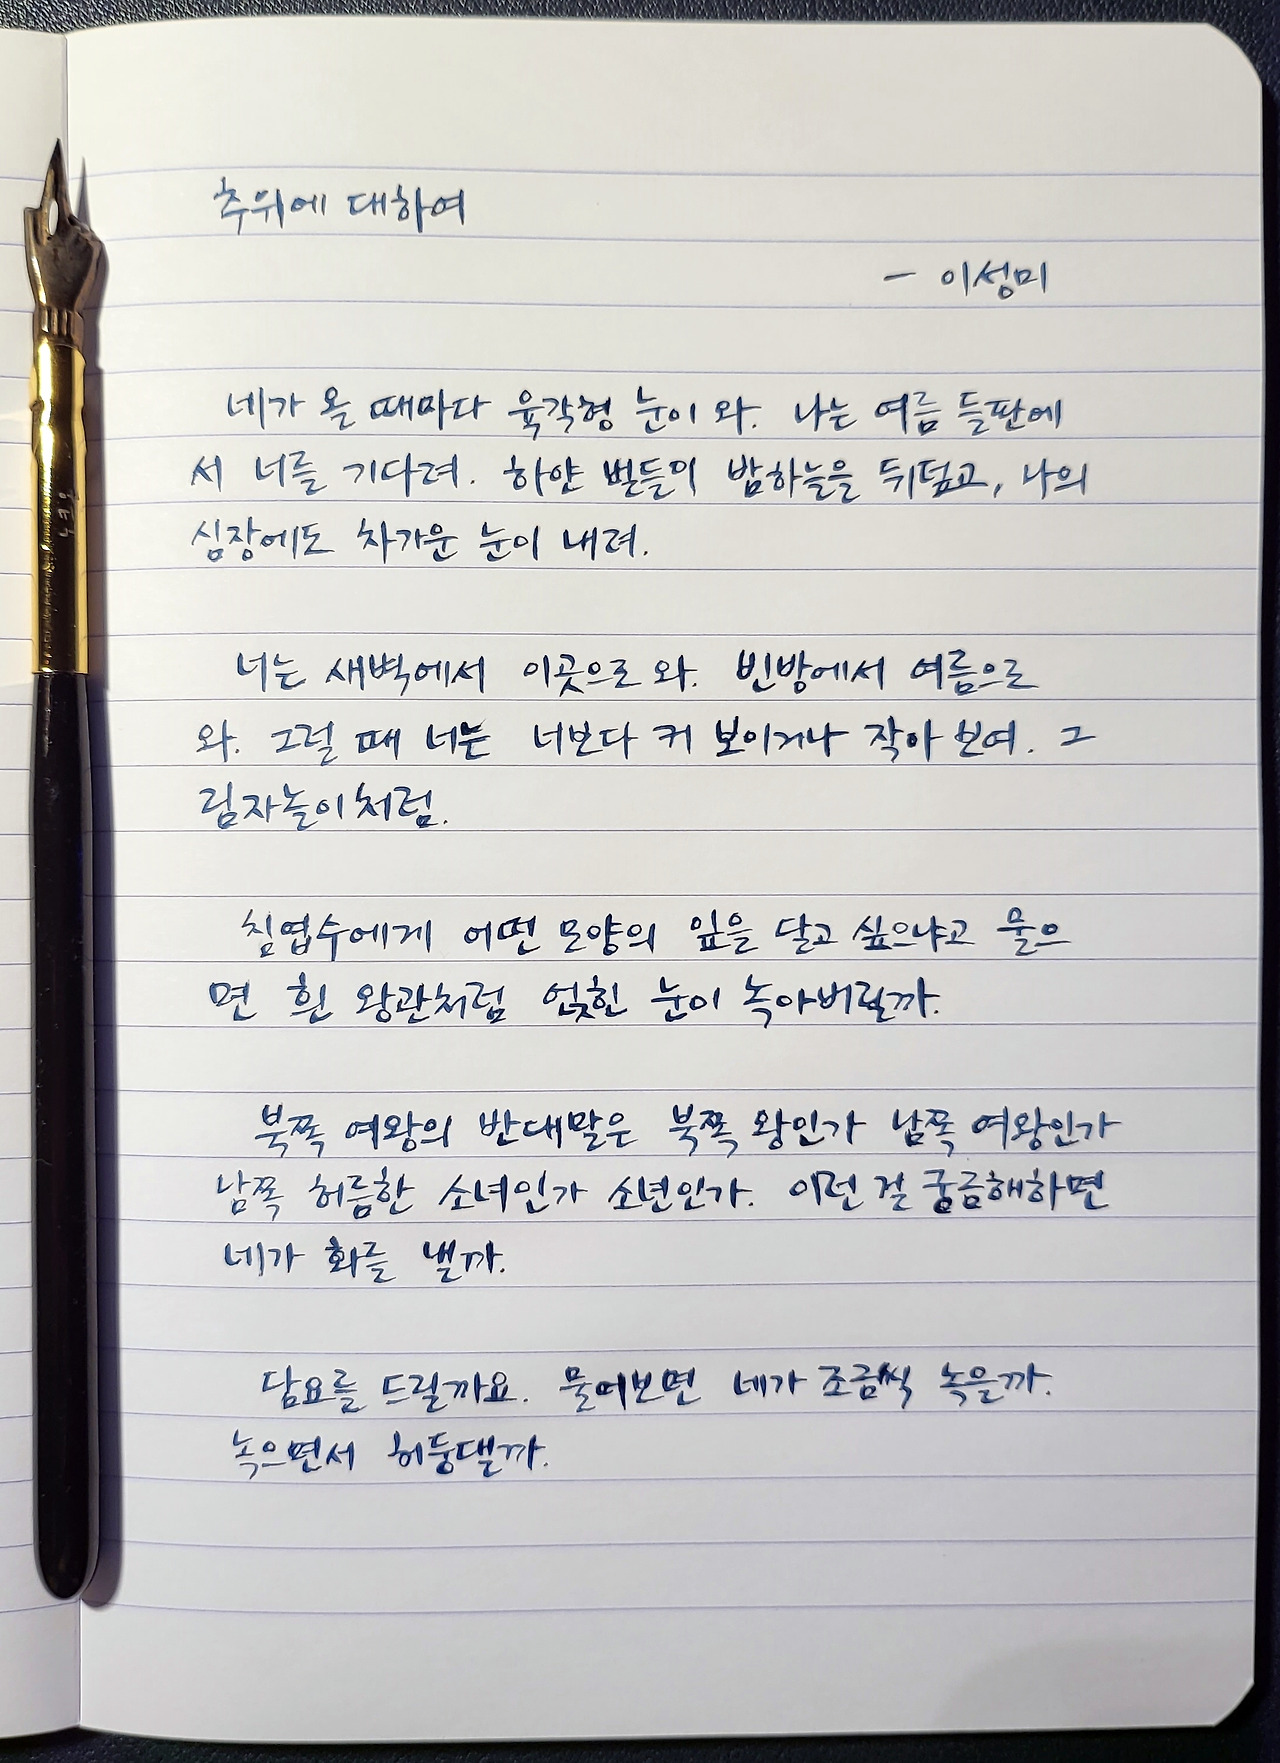 추위에 대하여
— 이성미
네가 올 때마다 육각형 눈이 와. 나는 여름 들판에
서 너를 기다려. 하얀 벌들이 밤하늘을 뒤덮고, 나의
심장에도 차가운 눈이 내려.
너는 새벽에서 이곳으로 와. 빈방에서 여름으로
와. 그럴 때 너는 너보다 커 보이거나 작아 보여. 그
림자놀이처럼.
침엽수에게 어떤 모양의 잎을 달고 싶으냐고 물으
면 흰 왕관처럼 얹힌 눈이 녹아버릴까.
북쪽 여왕의 반대말은 북쪽 왕인가 남쪽 여왕인가
남쪽 허름한 소녀인가 소년인가. 이런 걸 궁금해하면
네가 화를 낼까.
담요를 드릴까요. 물어보면 네가 조금씩 녹을까.
녹으면서 허둥댈까.